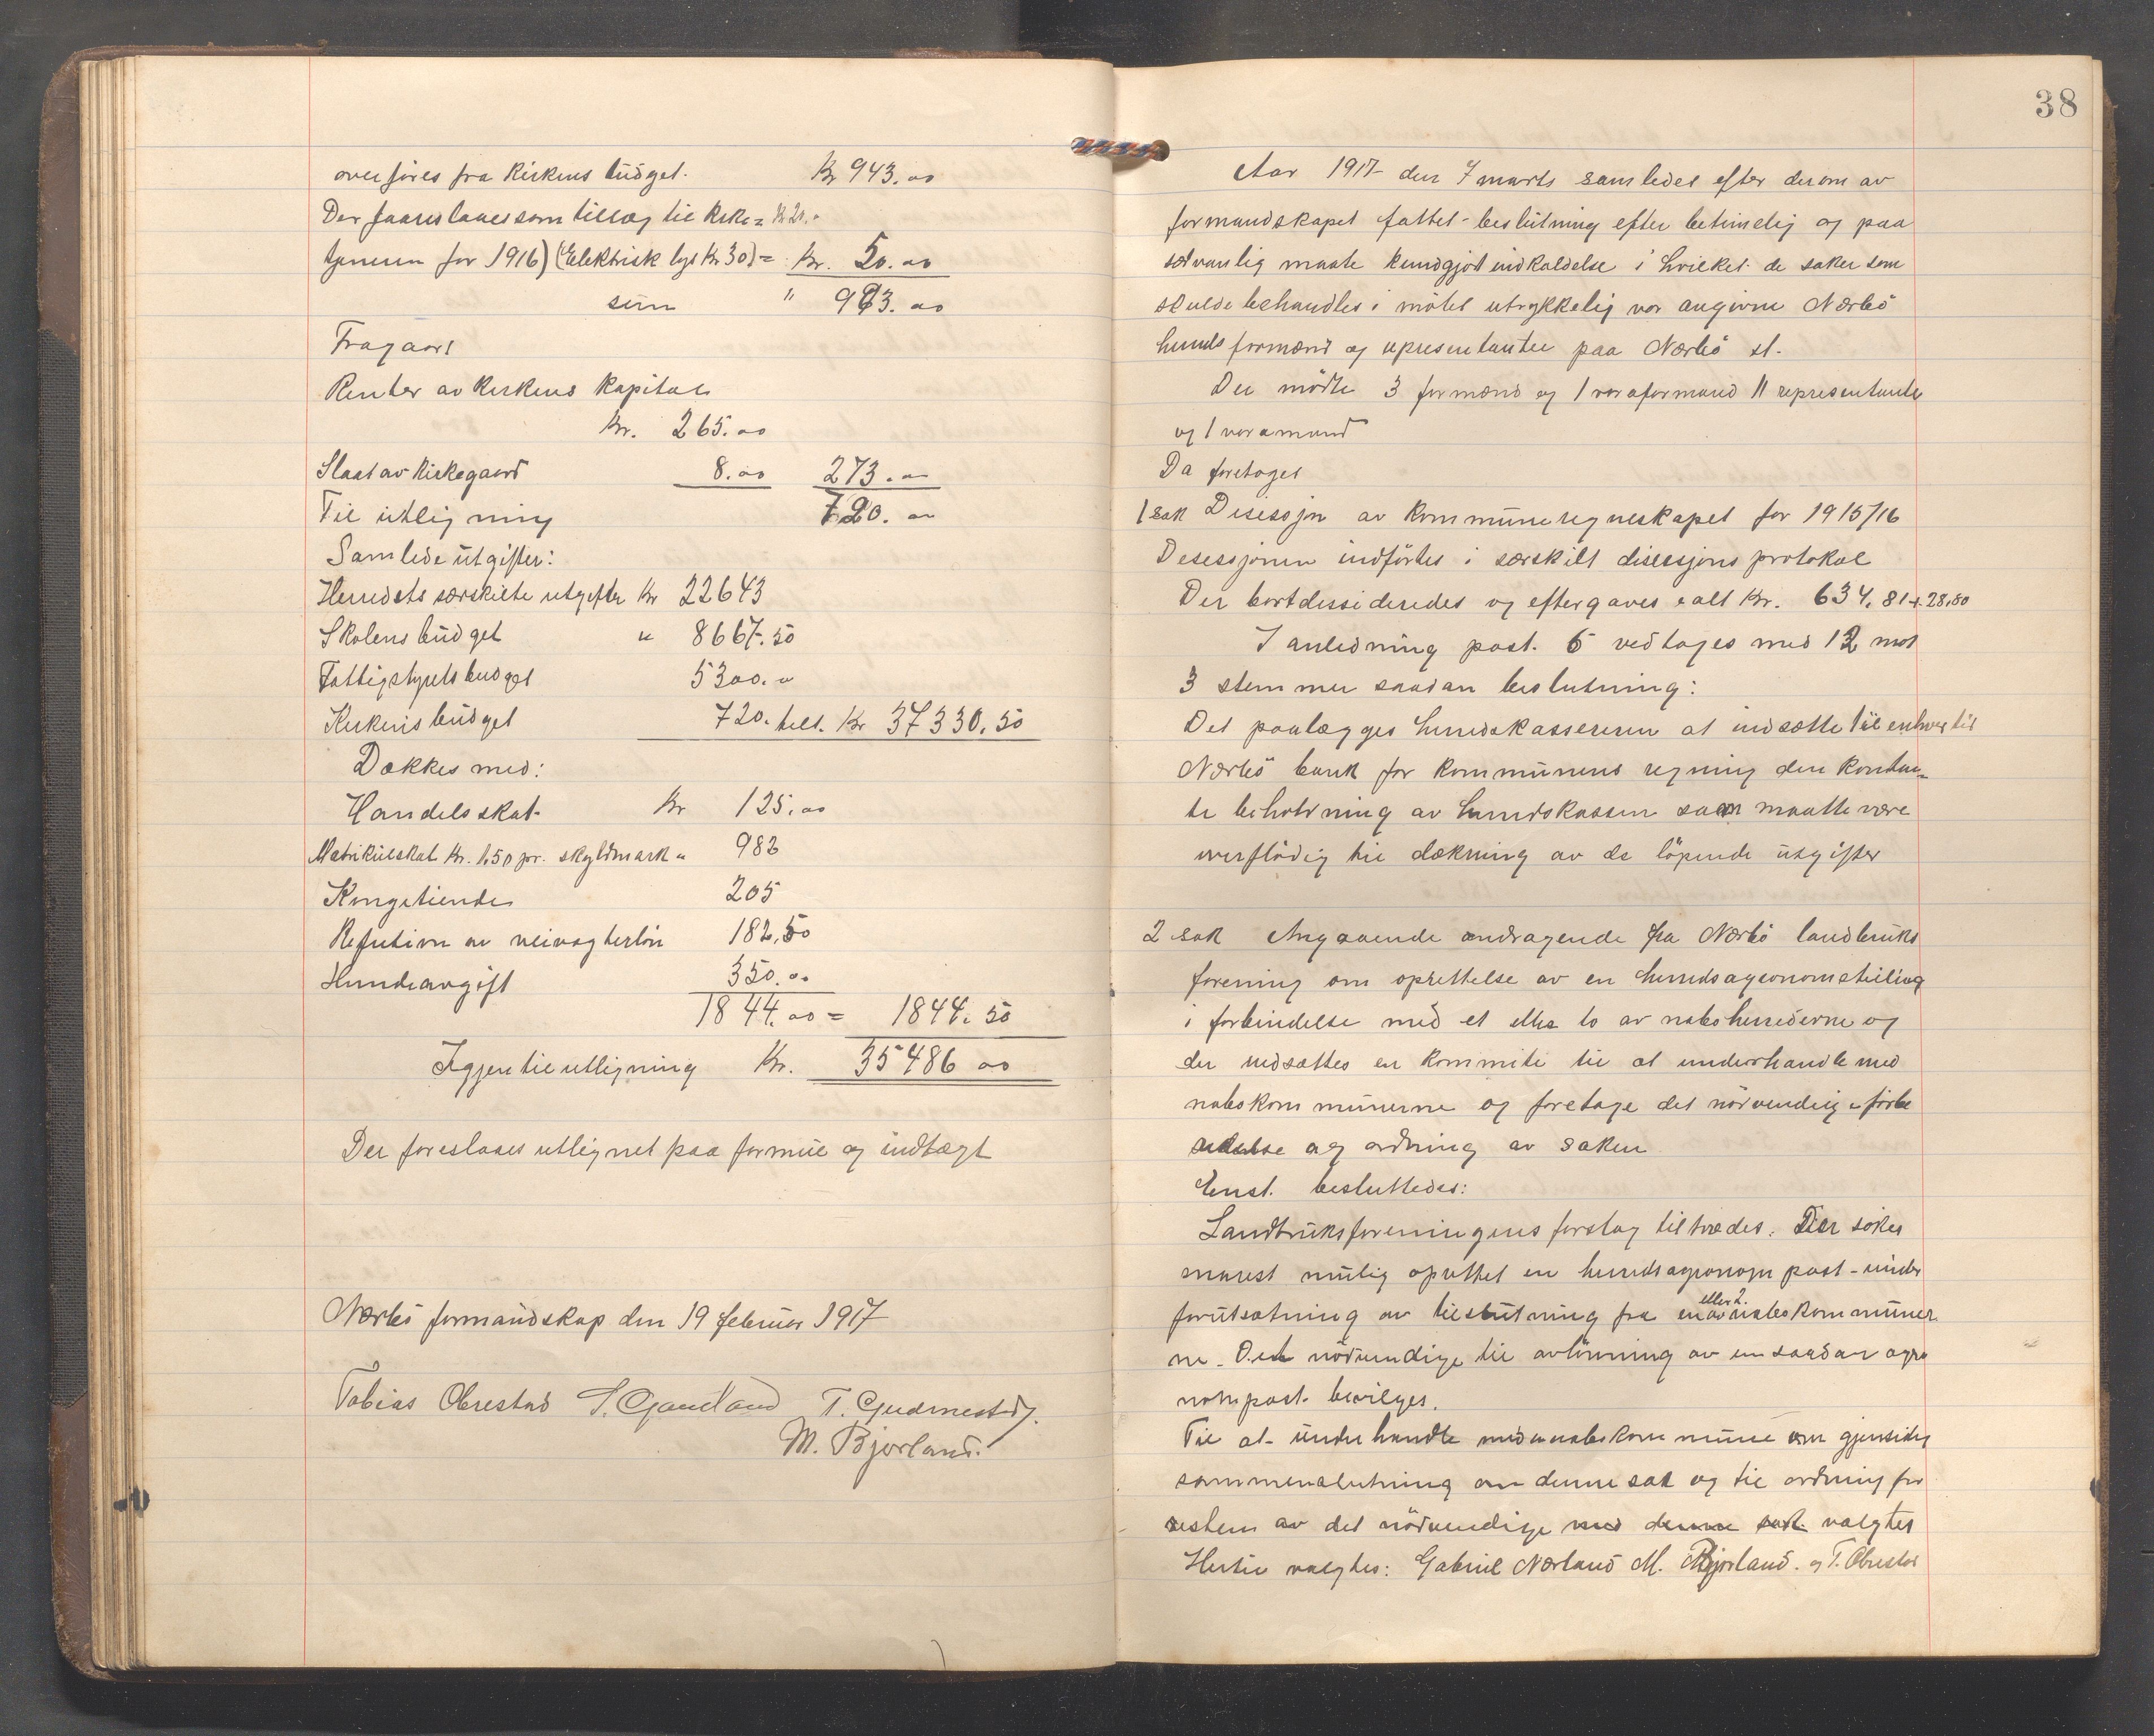 overføres fra Kirkens budget. Kr 943.00
Der foareslaaes som tillæg til Kirke= Kr 20.-
tjeneren for 1916) (Elektrisk lys Kr 30) = Kr. 50.00
sum " 993.00
Fragaar
Renter av Kirkens Kapital
Kr. 265.00
Slaat av Kirkegaard 8.00 273.00
Til utligning 720.00
Samlede utgifter:
Herredets særskilte utgifter Kr 22643
Skolens budget " 8667.50
Fattigstyrets budget 5300.00
Kirkens budget 720. tils. Kr 37330.50
Dækkes med:
Handelsskat Kr 125.00
Matrikulskat Kr. 1.50 pr. skyldmark " 982
Kongetiende 205
Refusion av veivogterløn 182.50
Hundeavgift 350.00
1844.00 = 1844.50
Igjen til utligning Kr. 35486 00
Der foreslaaes utlignet paa formue og indtægt
Nærbø formandskap den 19 februar 1917
Tobias Obrestad S. Gjeruldand T. Gudmestad.
M. Bjorland.
38
Aar 1917 den 7 marts samledes efter derom av
formandskapet fattet beslutning efter betimelig og paa
sedvanlig maate kundgjøt indkaldelse i hvilket de saker som
skulde behandles i møtet utrykkelig var angivne Nærbø
herreds formænd og representanter paa Nærbø st.
Der møtte 3 formænd og 1 varaformand 11 representanter
og 1 varamand
Da foretoges
1 sak Desesjon av Kommuneregneskapet for 1915/16
Desesjonen indførtes i særskilt disesjons protokol
Der bortdessideredes og eftergaves ialt Kr. 634.81 + 28.80
I anledning post. 6 vedtoges med 12 mot
3 stemmer saadan beslutning:
Det paalægges herredskassereren at indsætte til enhver tid
Nærbø bank for Kommunens regning den Kontan=
te beholdning av herredskassen som maatte være
overflødig til dækning av de løpende utgifter
2 sak Angaaende andragende fra Nærbø landbruks
forening om oprettelse av en herredsagronomstilling
i forbindelse med et eller to av naboherrederne og
der nedsættes en Kommite til at underhandle med
nabokommunerne og foretage det nødvendige forbe
redelse og ordning av saken
Enst. besluttedes:
Landbruksforeningens forslag tiltrædes. Der søkes
snarest mulig oprettet en herredsagronom post under
forutsætning av tilslutning fra en eller 2. av nabokommuner
ne. Det nødvendige til avlønning av en saadan agro
nompost bevilges.
Til at underhandle med nabokommune om gjensidig
sammenslutning om denne sak og til ordning for
resten av det nødvendige med denne sak valgtes
Hertil valgtes: Gabriel Nærland M. Bjorland. og T. Obrestad